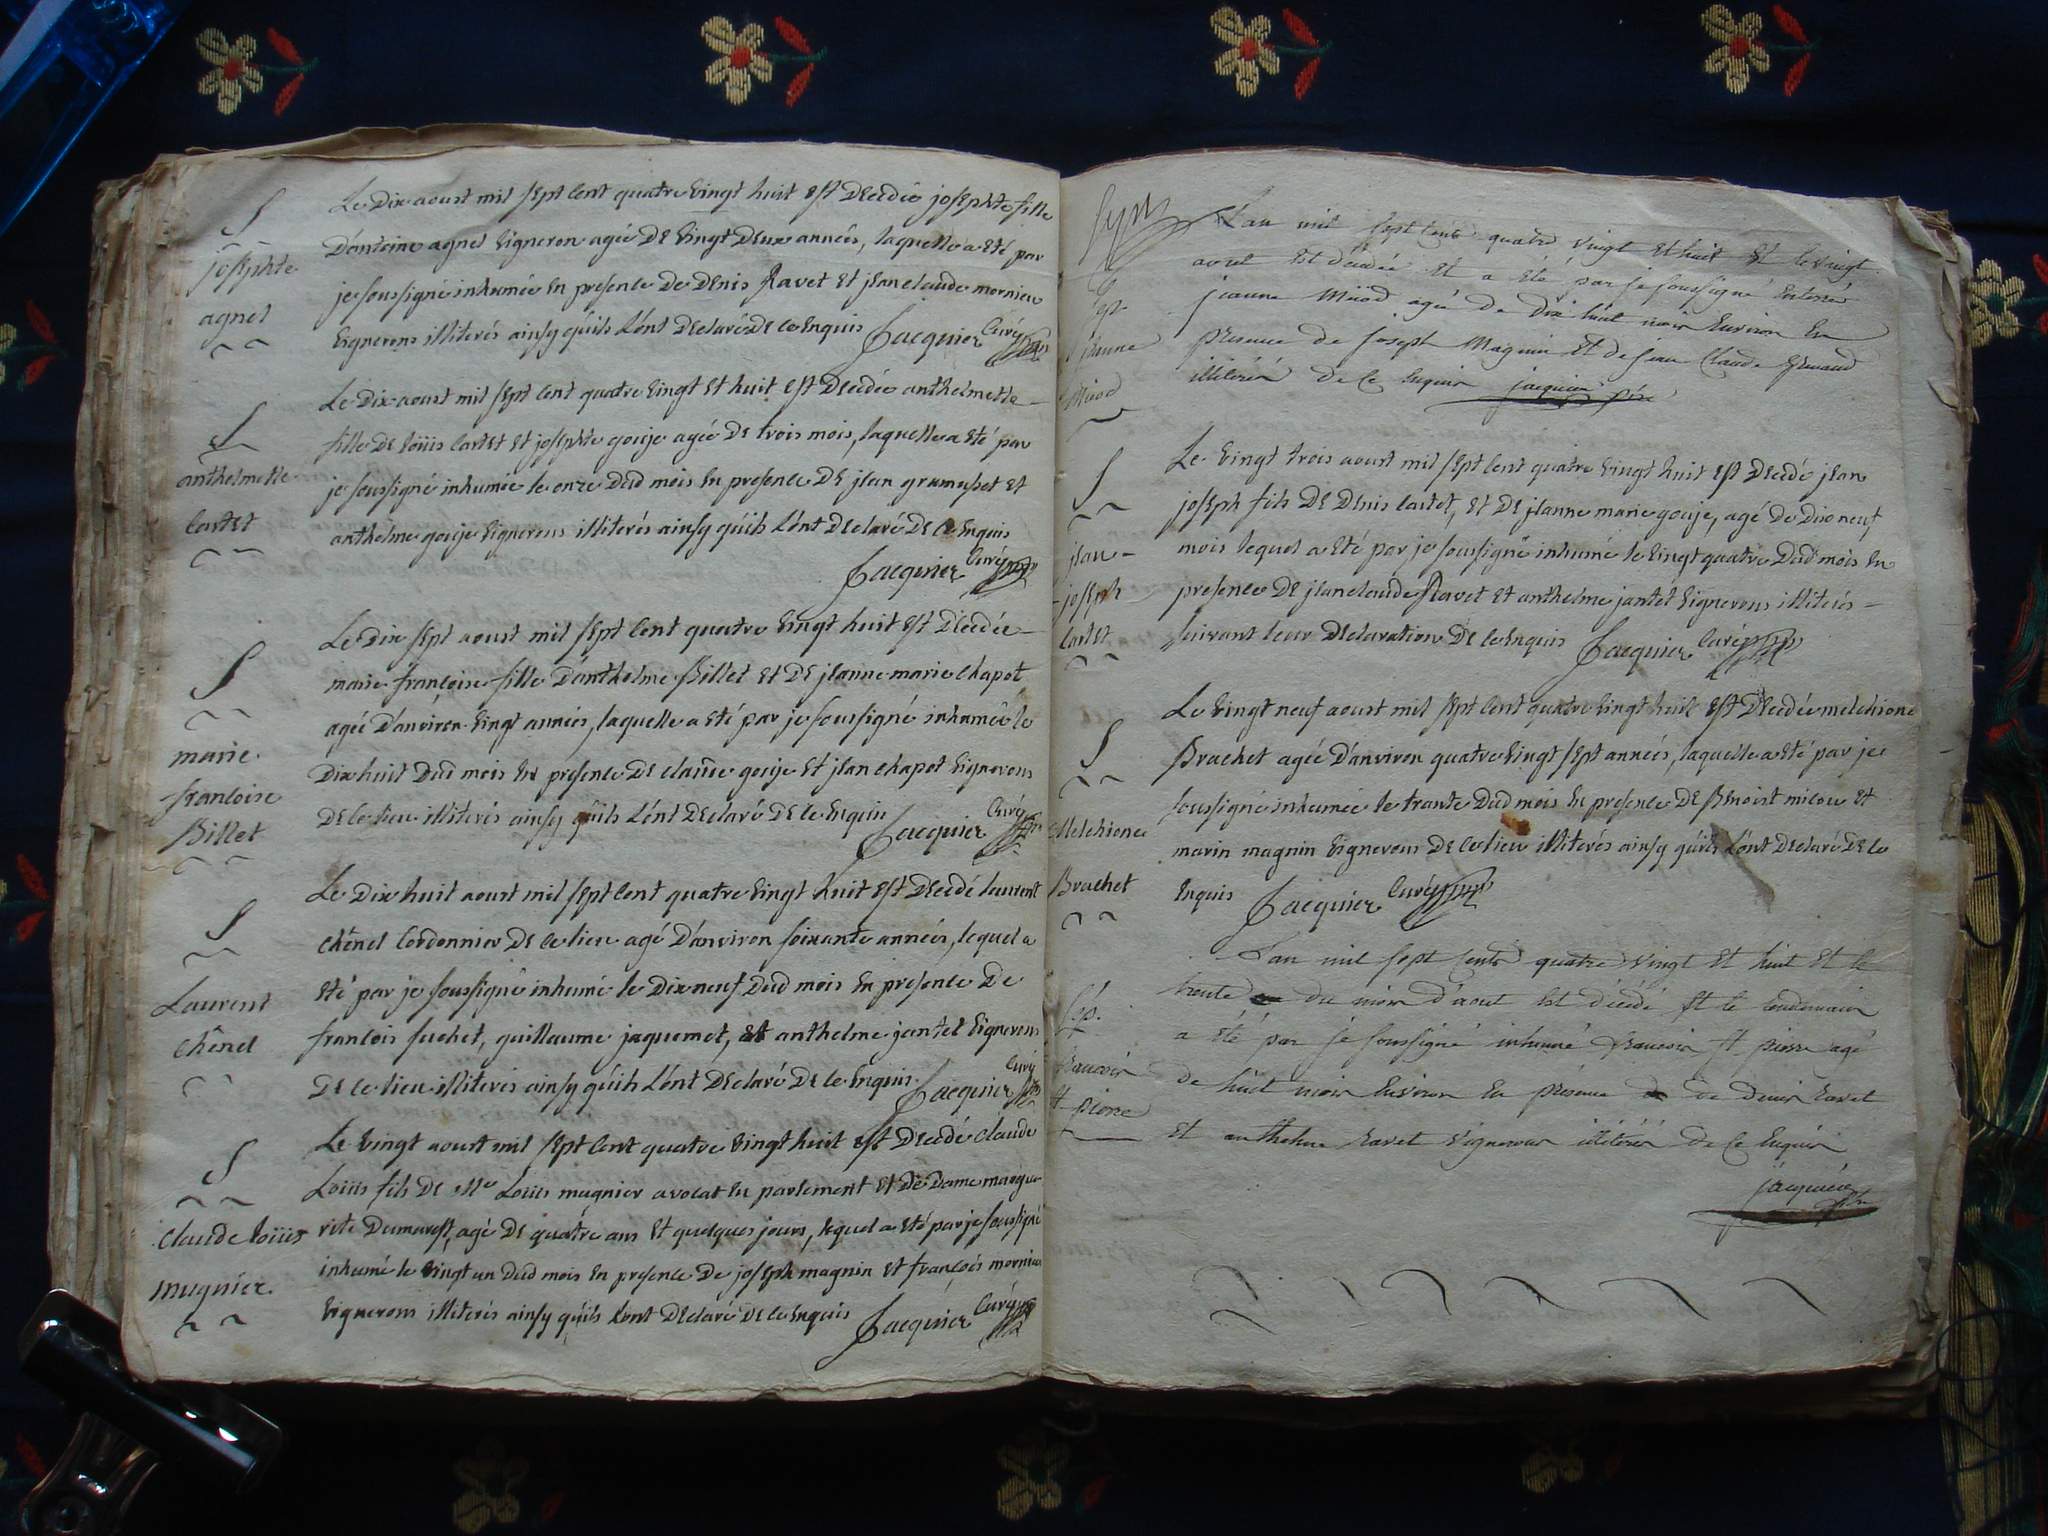 S
josephte
agnel
Le Dix aoust mil sept cent quatre vingt huit est Decedée josephte fille
D'antoine agnel vigneron agée De vingt Deux années, laquelle a eté par
je soussigné inhumée en presence De Denis Ravet et jean claude mornieu
vignerons illiterés ainsy qu'ils l'ont Declaré De ce enquis Jacquier Curé
S
anthelmette
Cartet
Le Dix aoust mil sept cent quatre vingt et huit est Decedée anthelmette
fille De Loüis Cartet et josephte gouje agée De trois mois, laquelle a eté par
je soussigné inhumée le onze Dud mois en presence De jean grumasset et
anthelme gouje vignerons illiterés ainsy qu'ils l'ont Declaré De ce enquis
Jacquier Curé
S
marie
francoise
Billet
Le Dix sept aoust mil sept cent quatre vingt huit est Decedée
marie françoise fille D'anthelme Billet et De jeanne marie chapot
agée D'anviron vingt années, laquelle a eté par je soussigné inhumée le
Dix huit Dud mois en presence De claude gouje et jean chapot vignerons
De ce lieu illiterés ainsy qu'ils l'ont Declaré De ce enquis Jacquier Curé
S
Laurent
chênel
Le Dix huit aoust mil sept cent quatre vingt huit est Decedé laurent
chênel Cordonnier De ce lieu agé D'anviron soixante années, lequel a
eté par je soussigné inhumé le Dix neuf Dud mois en presence De
francois suchet, guillaume jaquemet, et anthelme jantet vignerons
De ce lieu illiterés ainsy qu'ils l'ont Declaré De ce enquis Jacquier Curé
S
Claude Loüis
mugnier
Le vingt aoust mil sept cent quatre vingt huit est Decedé claude
Loüis fils De Me Loüis mugnier avocat en parlement et De Dame margue
rite Dumarest, agé De quatre ans et quelques jours, lequel a eté par je soussigné
inhumé le vingt un Dud mois en presence De joseph magnin et françois mornieu
vignerons illiterés ainsy qu'ils l'ont Declaré De ce enquis Jacquier Curé
Sep.
jeanne
Miod
L'an mil sept cent quatre vingt et huit et le vingt
aout est décedée et a été par je soussigné enterrée
jeanne Miod agé de dix huit mois environ en
presence de joseph Magnin et de jean Claude
illiterés de ce enquis jacquier
S
jean
joseph
Cartet
Le vingt trois aoust mil sept cent quatre vingt huit est Decedé jean
joseph fils De Denis Cartet, et De jeanne marie gouje, agé De Dix neuf
mois lequel a eté par je soussigné inhumé le vingt quatre Dud mois en
presence De jean claude Ravet et anthelme jantet vignerons illiterés
suivant leur Declaration De ce enquis Jacquier Curé
S
Melchione
Brachet
Le vingt neuf aoust mil sept cent quatre vingt huit est Decedée melchione
Brachet agée D'anviron quatre vingt sept années, laquelle a eté par je
soussigné inhumée le trante Dud mois en presence De Benoist milou et
marin magnin vignerons De ce lieu illiterés ainsy qu'ils l'ont Declaré De ce
enquis Jacquier Curé
Sép.
francois
St pierre
L'an mil sept cents quatre vingt et huit et le
trente du mois d'aout est décédé et le lendemain
a été par je soussigné inhumé francois St pierre agé
de huit mois environ en présence de denis ravet
et anthelme ravet vignerons illitérés de ce enquis
jacquier